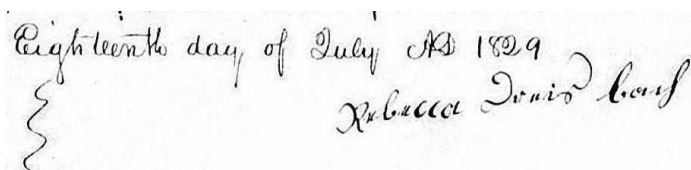 Eighteenth day of July AD 1829
Rebecca Dreisbach